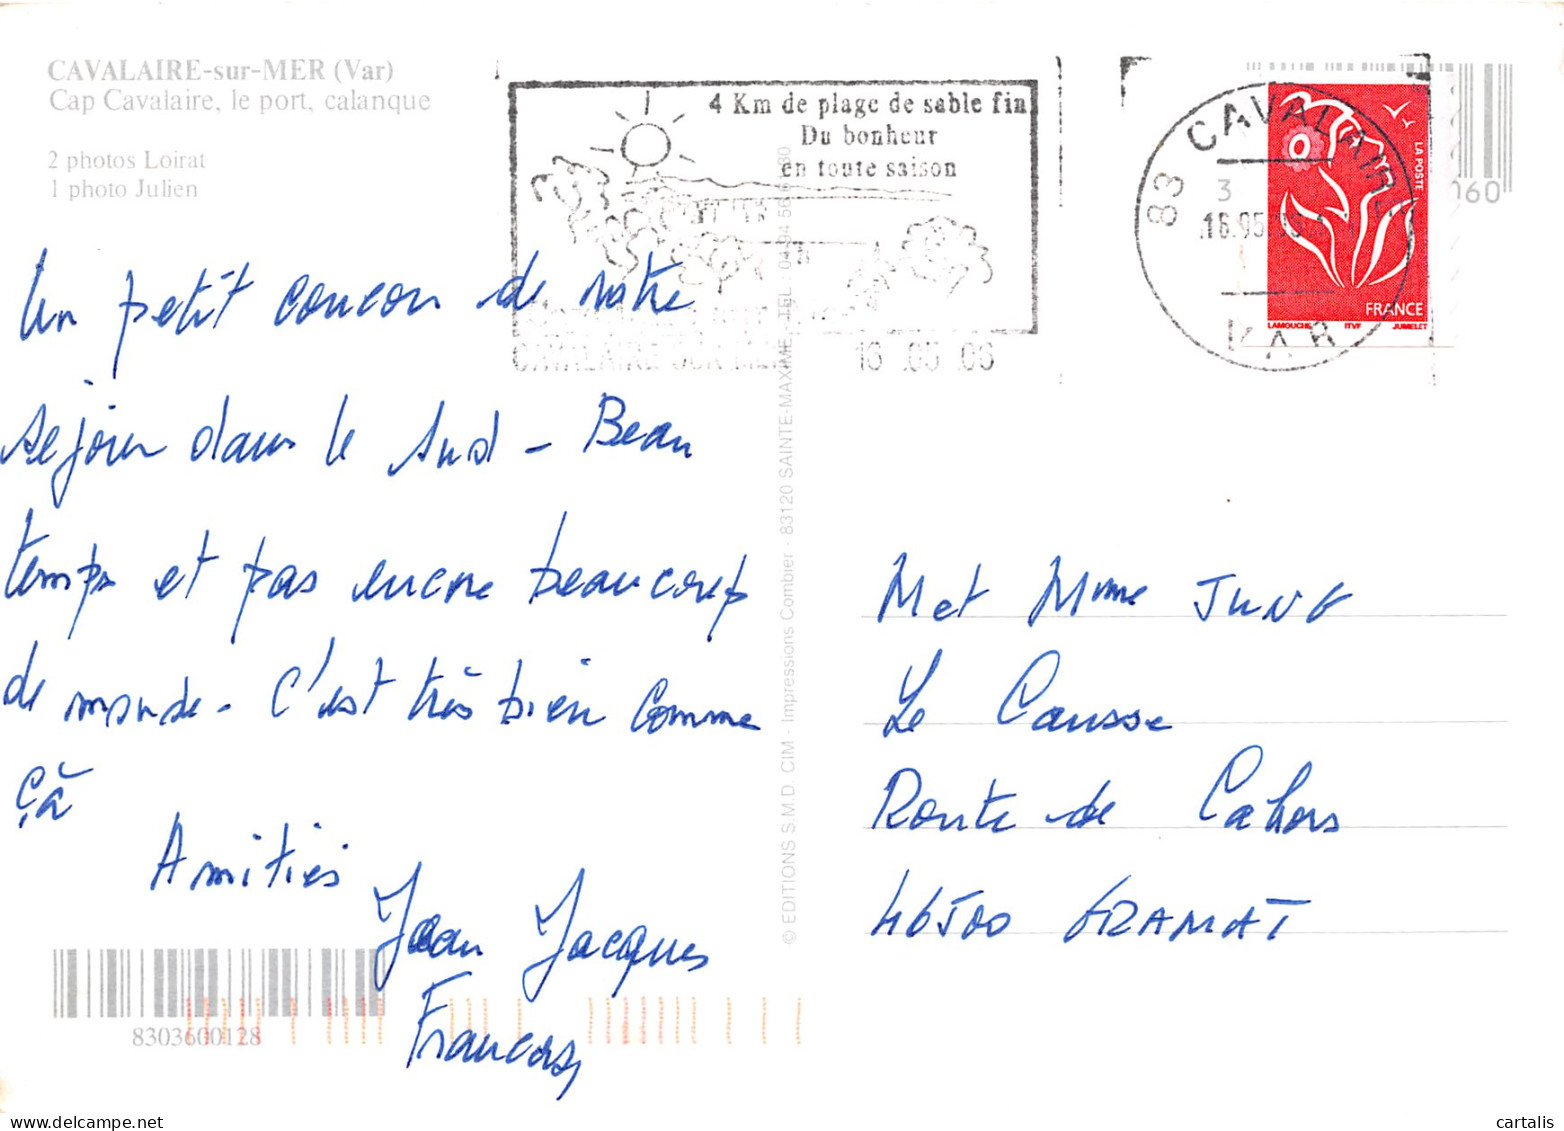 CAVALAIRE-sur-MER (Var)
Cap Cavalaire, le port, calanque
2 photos Loirat
1 photo Julien
4 Km de plage de sable fin
Du bonheur
en toute saison
CAVALAIRE SUR MER 16 .05 .06
83 CAVALAIRE
VAR
LA POSTE
FRANCE
LAMOUCHE ITVF JUMELET
160
Un petit coucou de notre
séjour dans le Sud - Beau
temps et pas encore beaucoup
de monde - C'est très bien comme
çà
Amitiés
Jean Jacques
8303600128
© EDITIONS S.M.D. CIM - Impressions Combier - 83120 SAINTE-MAXIME, TEL : 04 94 56
M et Mme JUNG
Le Causse
Route de Cahors
46500 GRAMAT
cartalis